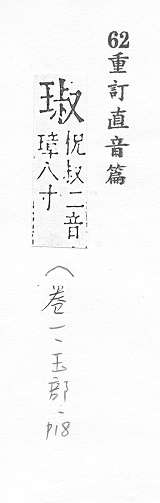 62重訂直音篇
琡 悅叔二音
璋八寸
（卷一、玉部、p18